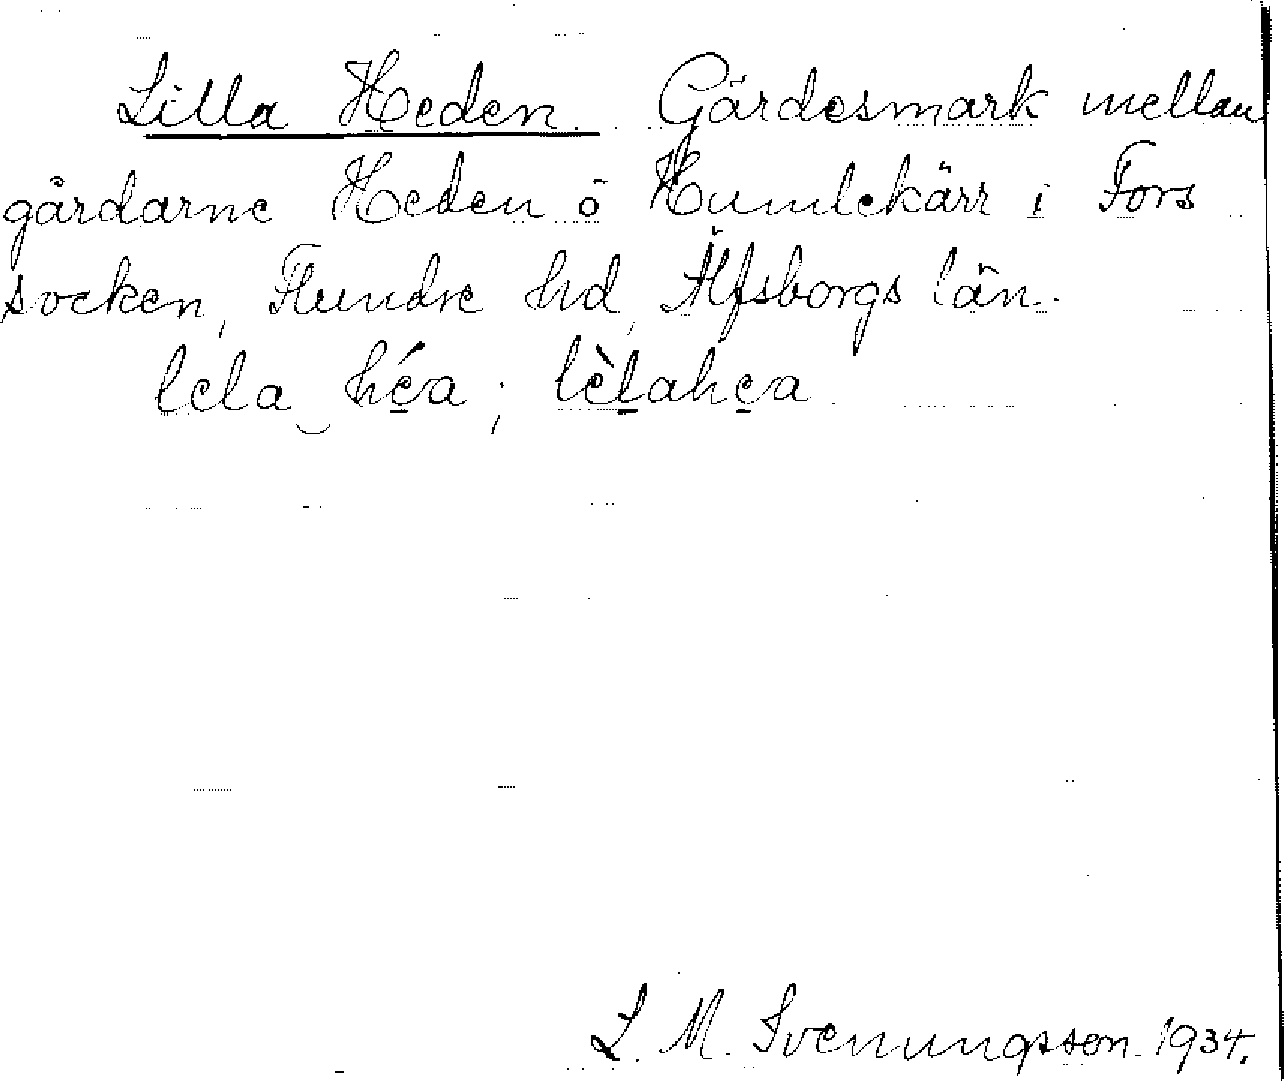 Lilla Heden. Gärdesmark mellan
gårdarne Heden o Humlekärr i Fors
socken, Flundre hd, Älfsborgs län.
lela héa; lèlahea
L. M. Svenungsson 1934.